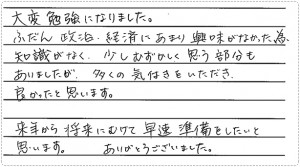 大変勉強になりました。
ふだん 政治・経済に あまり 興味がなかった為、
知識がなく、少しむずかしく思う部分も
ありましたが、多くの気付きをいただき
良かったと思います。
来年から将来にむけて早速準備をしたいと
思います。 ありがとうございました。